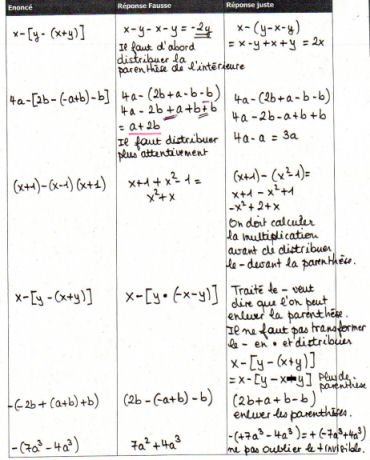 Enoncé Réponse Fausse Réponse juste
x-[y-(x+y)]
x-y-x-y = -2y
Il faut d'abord
distribuer la
parenthèse de l'intérieure
x-(y-x-y)
= x-y+x+y = 2x
4a-[2b-(-a+b)-b]
4a-(2b+a-b-b)
4a-2b+a+b+b
= a+2b
Il faut distribuer
plus attentivement
4a-(2b+a-b-b)
4a-2b-a+b+b
4a-a = 3a
(x+1)-(x-1)(x+1)
x+1+x²-1 =
x²+x
(x+1)-(x²-1)=
x+1-x²+1
-x²+2+x
On doit calculer
la multiplication
avant de distribuer
le - devant la parenthèse.
x-[y-(x+y)]
x-[y•(-x-y)]
Traité le - veut
dire que l'on peut
enlever la parenthèse.
Il ne faut pas transformer
le - en • et distribuer
x-[y-(x+y)]
=x-[y-x-y] Plus de
parenthèse
-(-2b+(a+b)+b)
(2b-(-a+b)-b)
(2b+a+b-b)
enlever les parenthèses.
-(7a³-4a³)
7a²+4a³
-(+7a³-4a³)=+(-7a³+4a³)
ne pas oublier le + invisible.